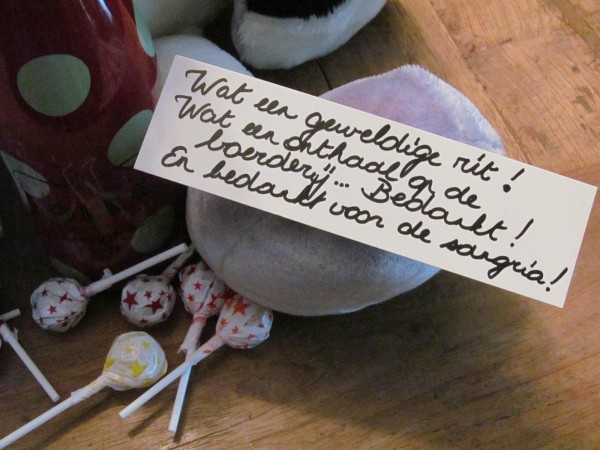 Wat een geweldige rit!
Wat een onthaal op de
boerderij... Bedankt!
En bedankt voor de sangria!